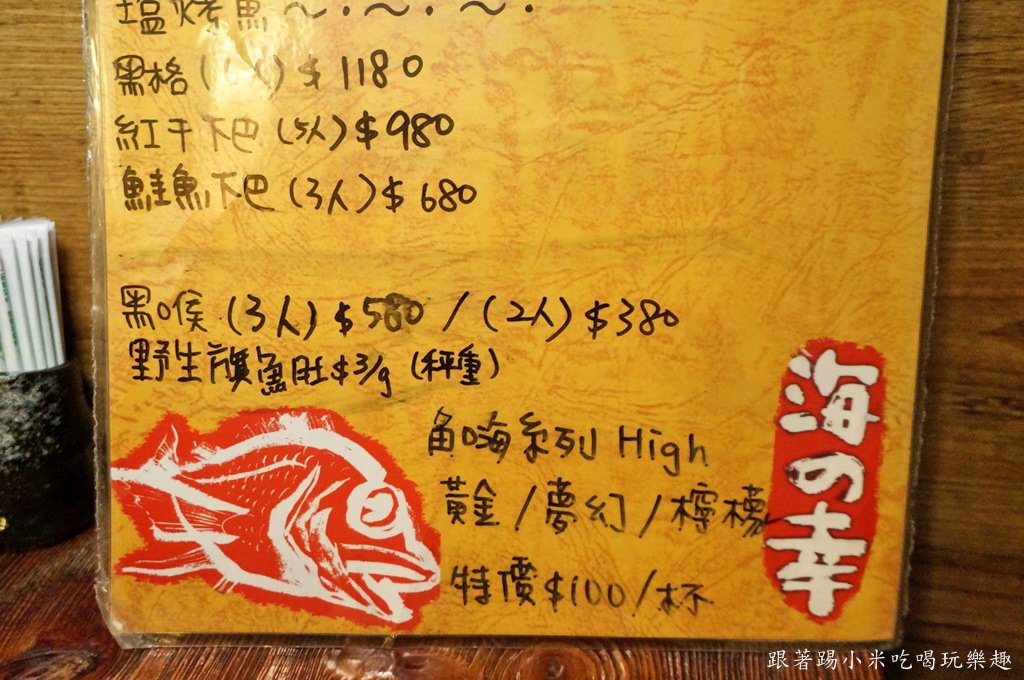 塩烤魚～．～．～．
黑格( 人)$1180
紅干下巴(5人)$980
鮭魚下巴(3人)$680
黑喉(3人)$580/(2人)$380
野生旗魚肚$3/g(秤重)
魚嗨系列 High
黃金/夢幻/檸檬
特價$100/杯
海の幸
跟著踢小米吃喝玩樂趣